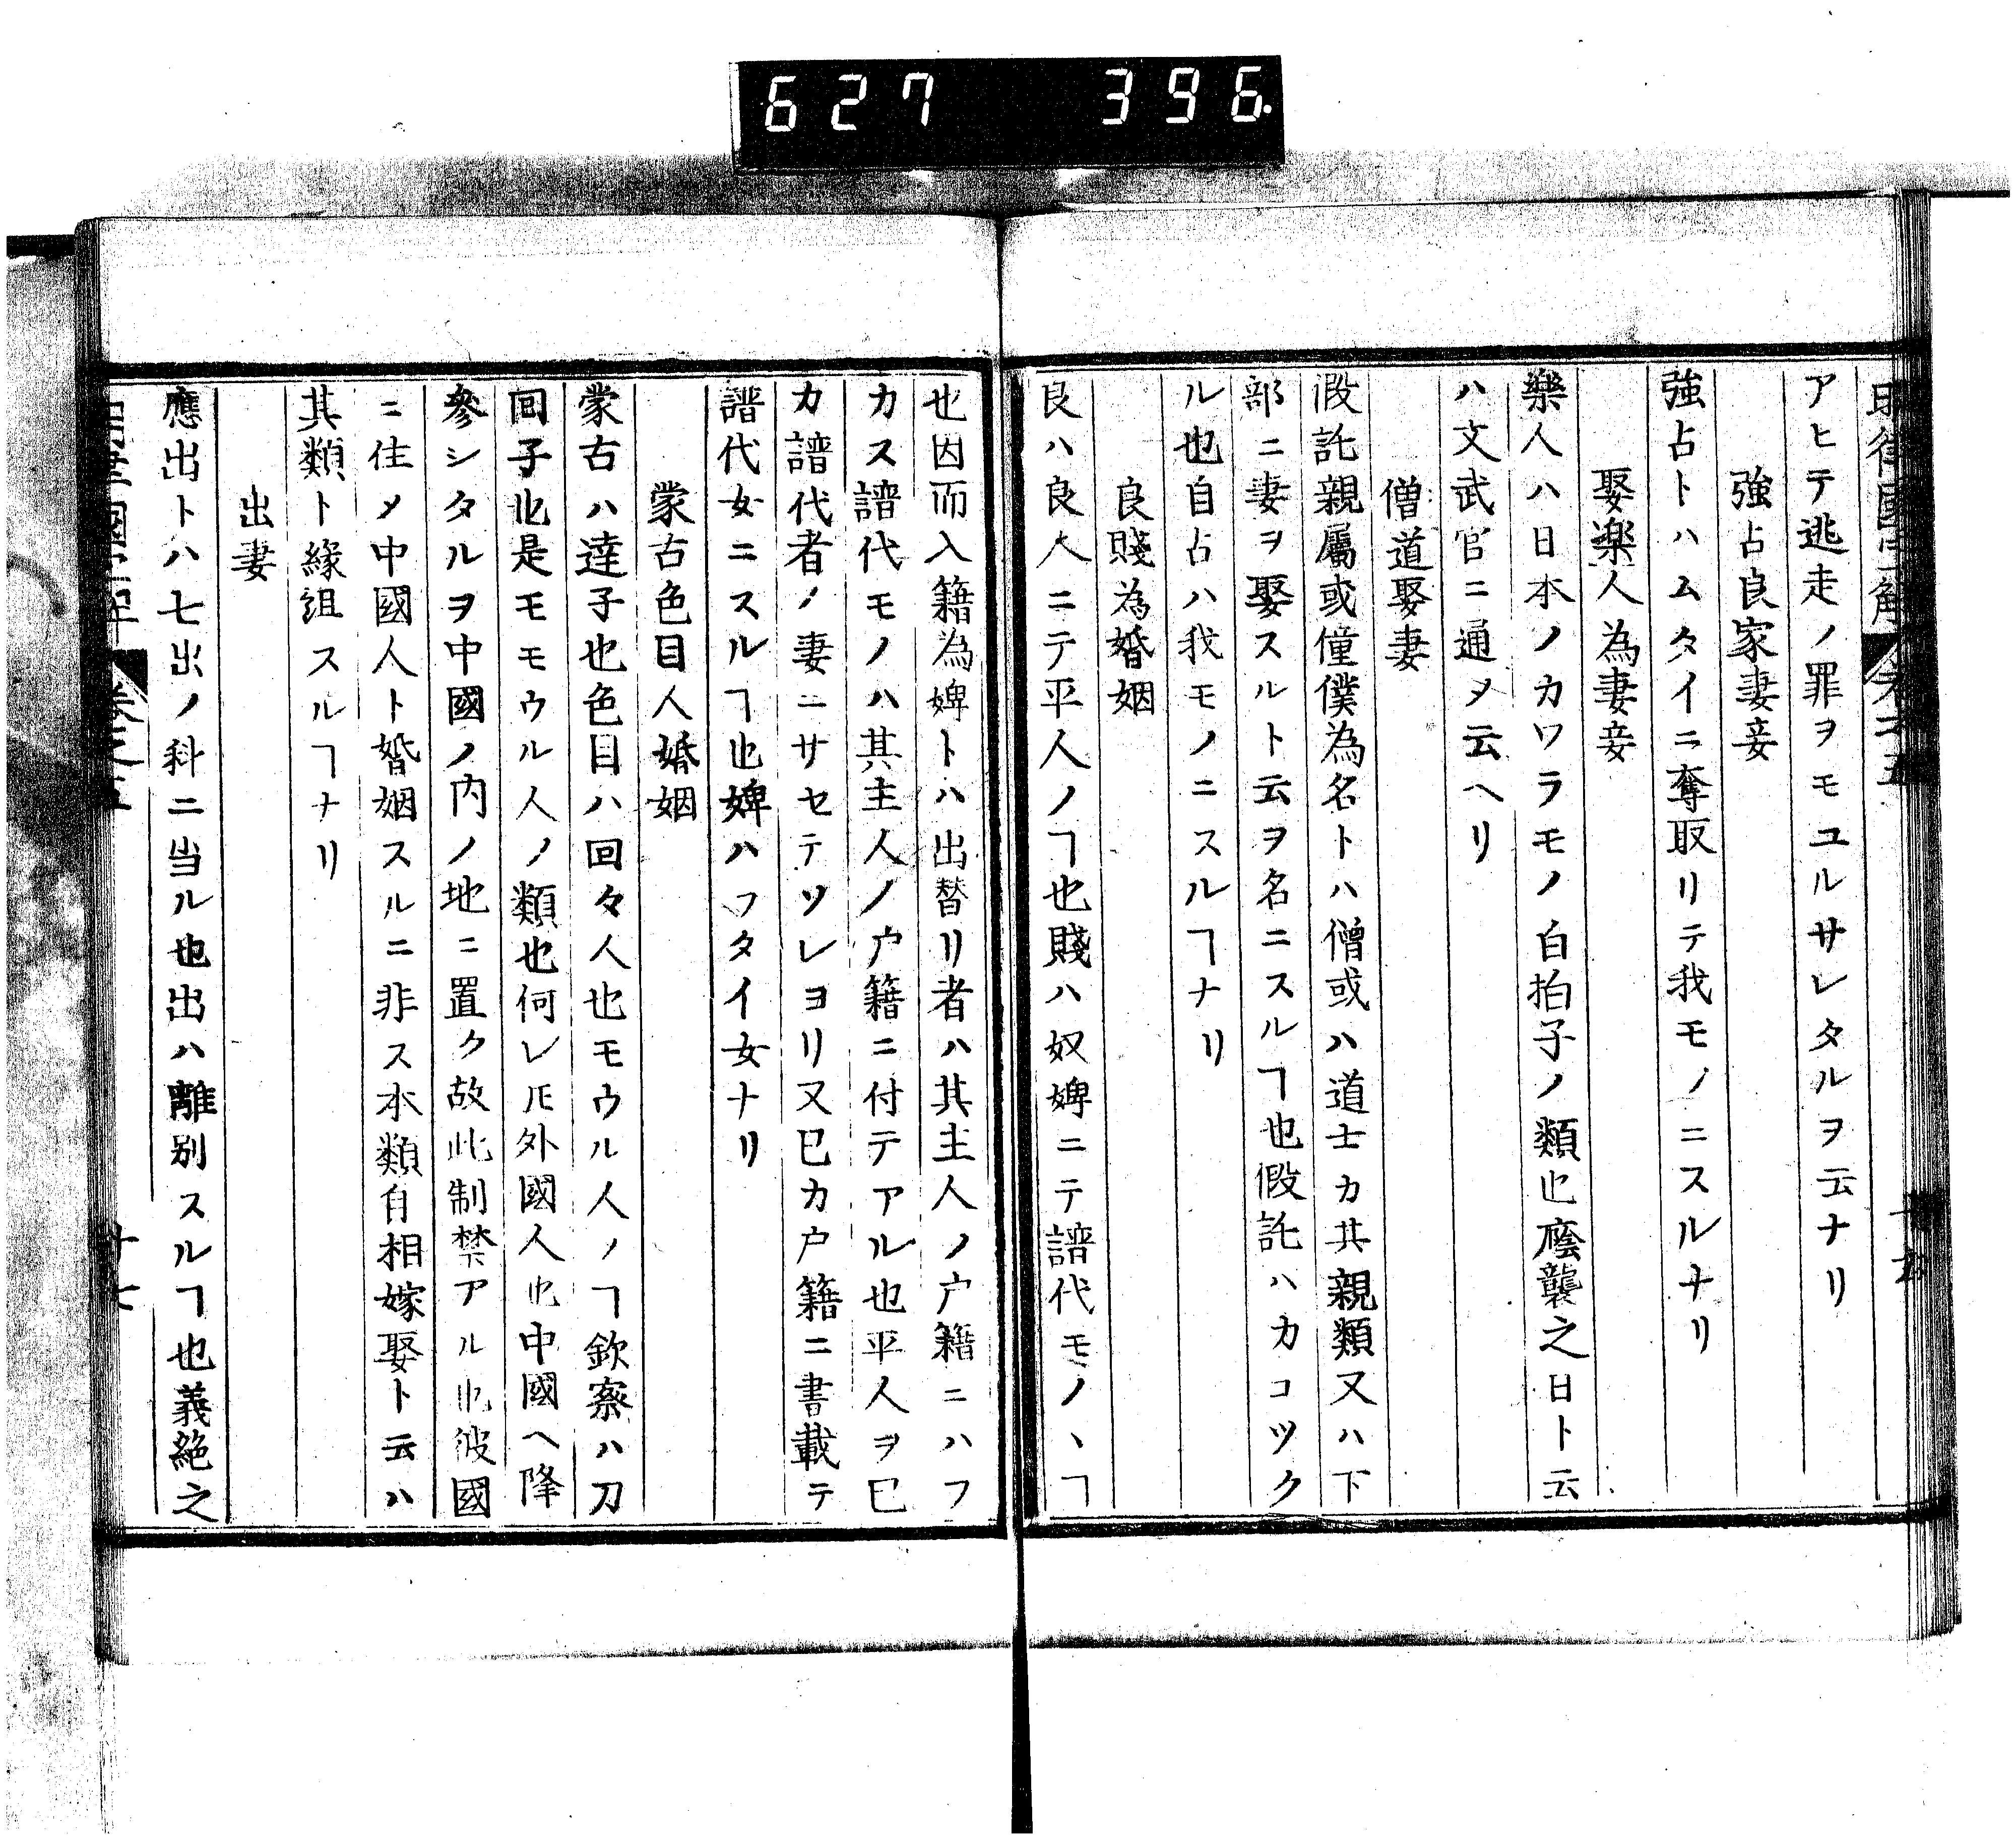 627 396.
アヒテ逃走ノ罪ヲモユルサレタルヲ云ナリ
強占良家妻妾
強占トハムタイニ奪取リテ我モノニスルナリ
娶楽人為妻妾
樂人ハ日本ノカワラモノ白拍子ノ類也廕襲之日ト云
ハ文武官ニ通メ云ヘリ
僧道娶妻
假託親屬或僮僕為名トハ僧或ハ道士カ其親類又ハ下
部ニ妻ヲ娶スルト云ヲ名ニスルヿ也假託ハカコツク
ル也自占ハ我モノニスルヿナリ
良賤為婚姻
良ハ良人ニテ平人ノヿ也賤ハ奴婢ニテ譜代モノヽヿ
也因而入籍為婢トハ出替リ者ハ其主人ノ户籍ニハフ
カス譜代モノハ其主人ノ户籍ニ付テアル也平人ヲ已
カ譜代者ノ妻ニサセテソレヨリ又已カ户籍ニ書載テ
譜代女ニスルヿ也婢ハフタイ女ナリ
蒙古色目人婚姻
蒙古ハ達子也色目ハ回々人也モウル人ノヿ欽察ハ刀
回子也是モモウル人ノ類也何レ𪜈外國人也中國ヘ降
參シタルヲ中國ノ内ノ地ニ置ク故此制禁アル也彼國
ニ住メ中國人ト婚姻スルニ非ス本類自相嫁娶ト云ハ
其類ト緣組スルヿナリ
出妻
應出トハ七出ノ科ニ当ル也出ハ離别スルヿ也義絶之